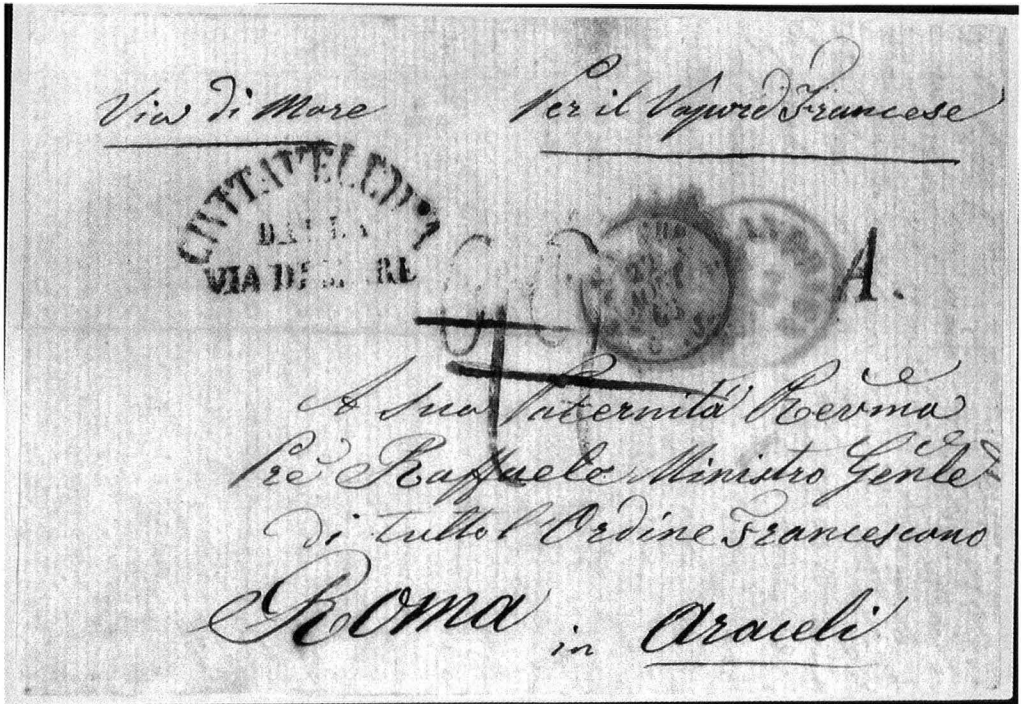 Via di Mare
Per il Vapore Francese
CIVITAVECCHIA
DALLA
VIA DI MARE
A.
A Sua Paternità Revma
Pre Raffaele Ministro Genle
di tutto l'Ordine Francescano
Roma in Araceli